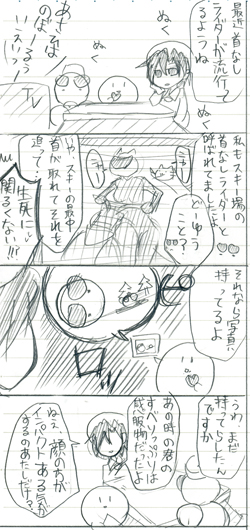 最近首なし
ライダーが流行ってるようね
ぬく
ぬく
TV
私もスキー場の
首なしライダーと
呼ばれてまして
どーゆう
こと?
いやースキーの最中
首が取れてそれを
追って…
生死に
関るくない!!?
それなら写真
持ってるよ
うわ、まだ
持ってらしたん
ですか
あの時の君の
すべりっぷりは
感服物だったよ
ねぇ、顔の方が
インパクトある気が
するのあたしだけ?